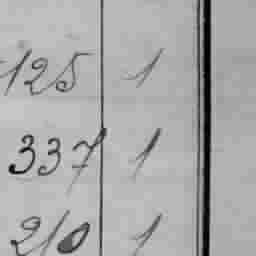 125 1
337 1
210 1